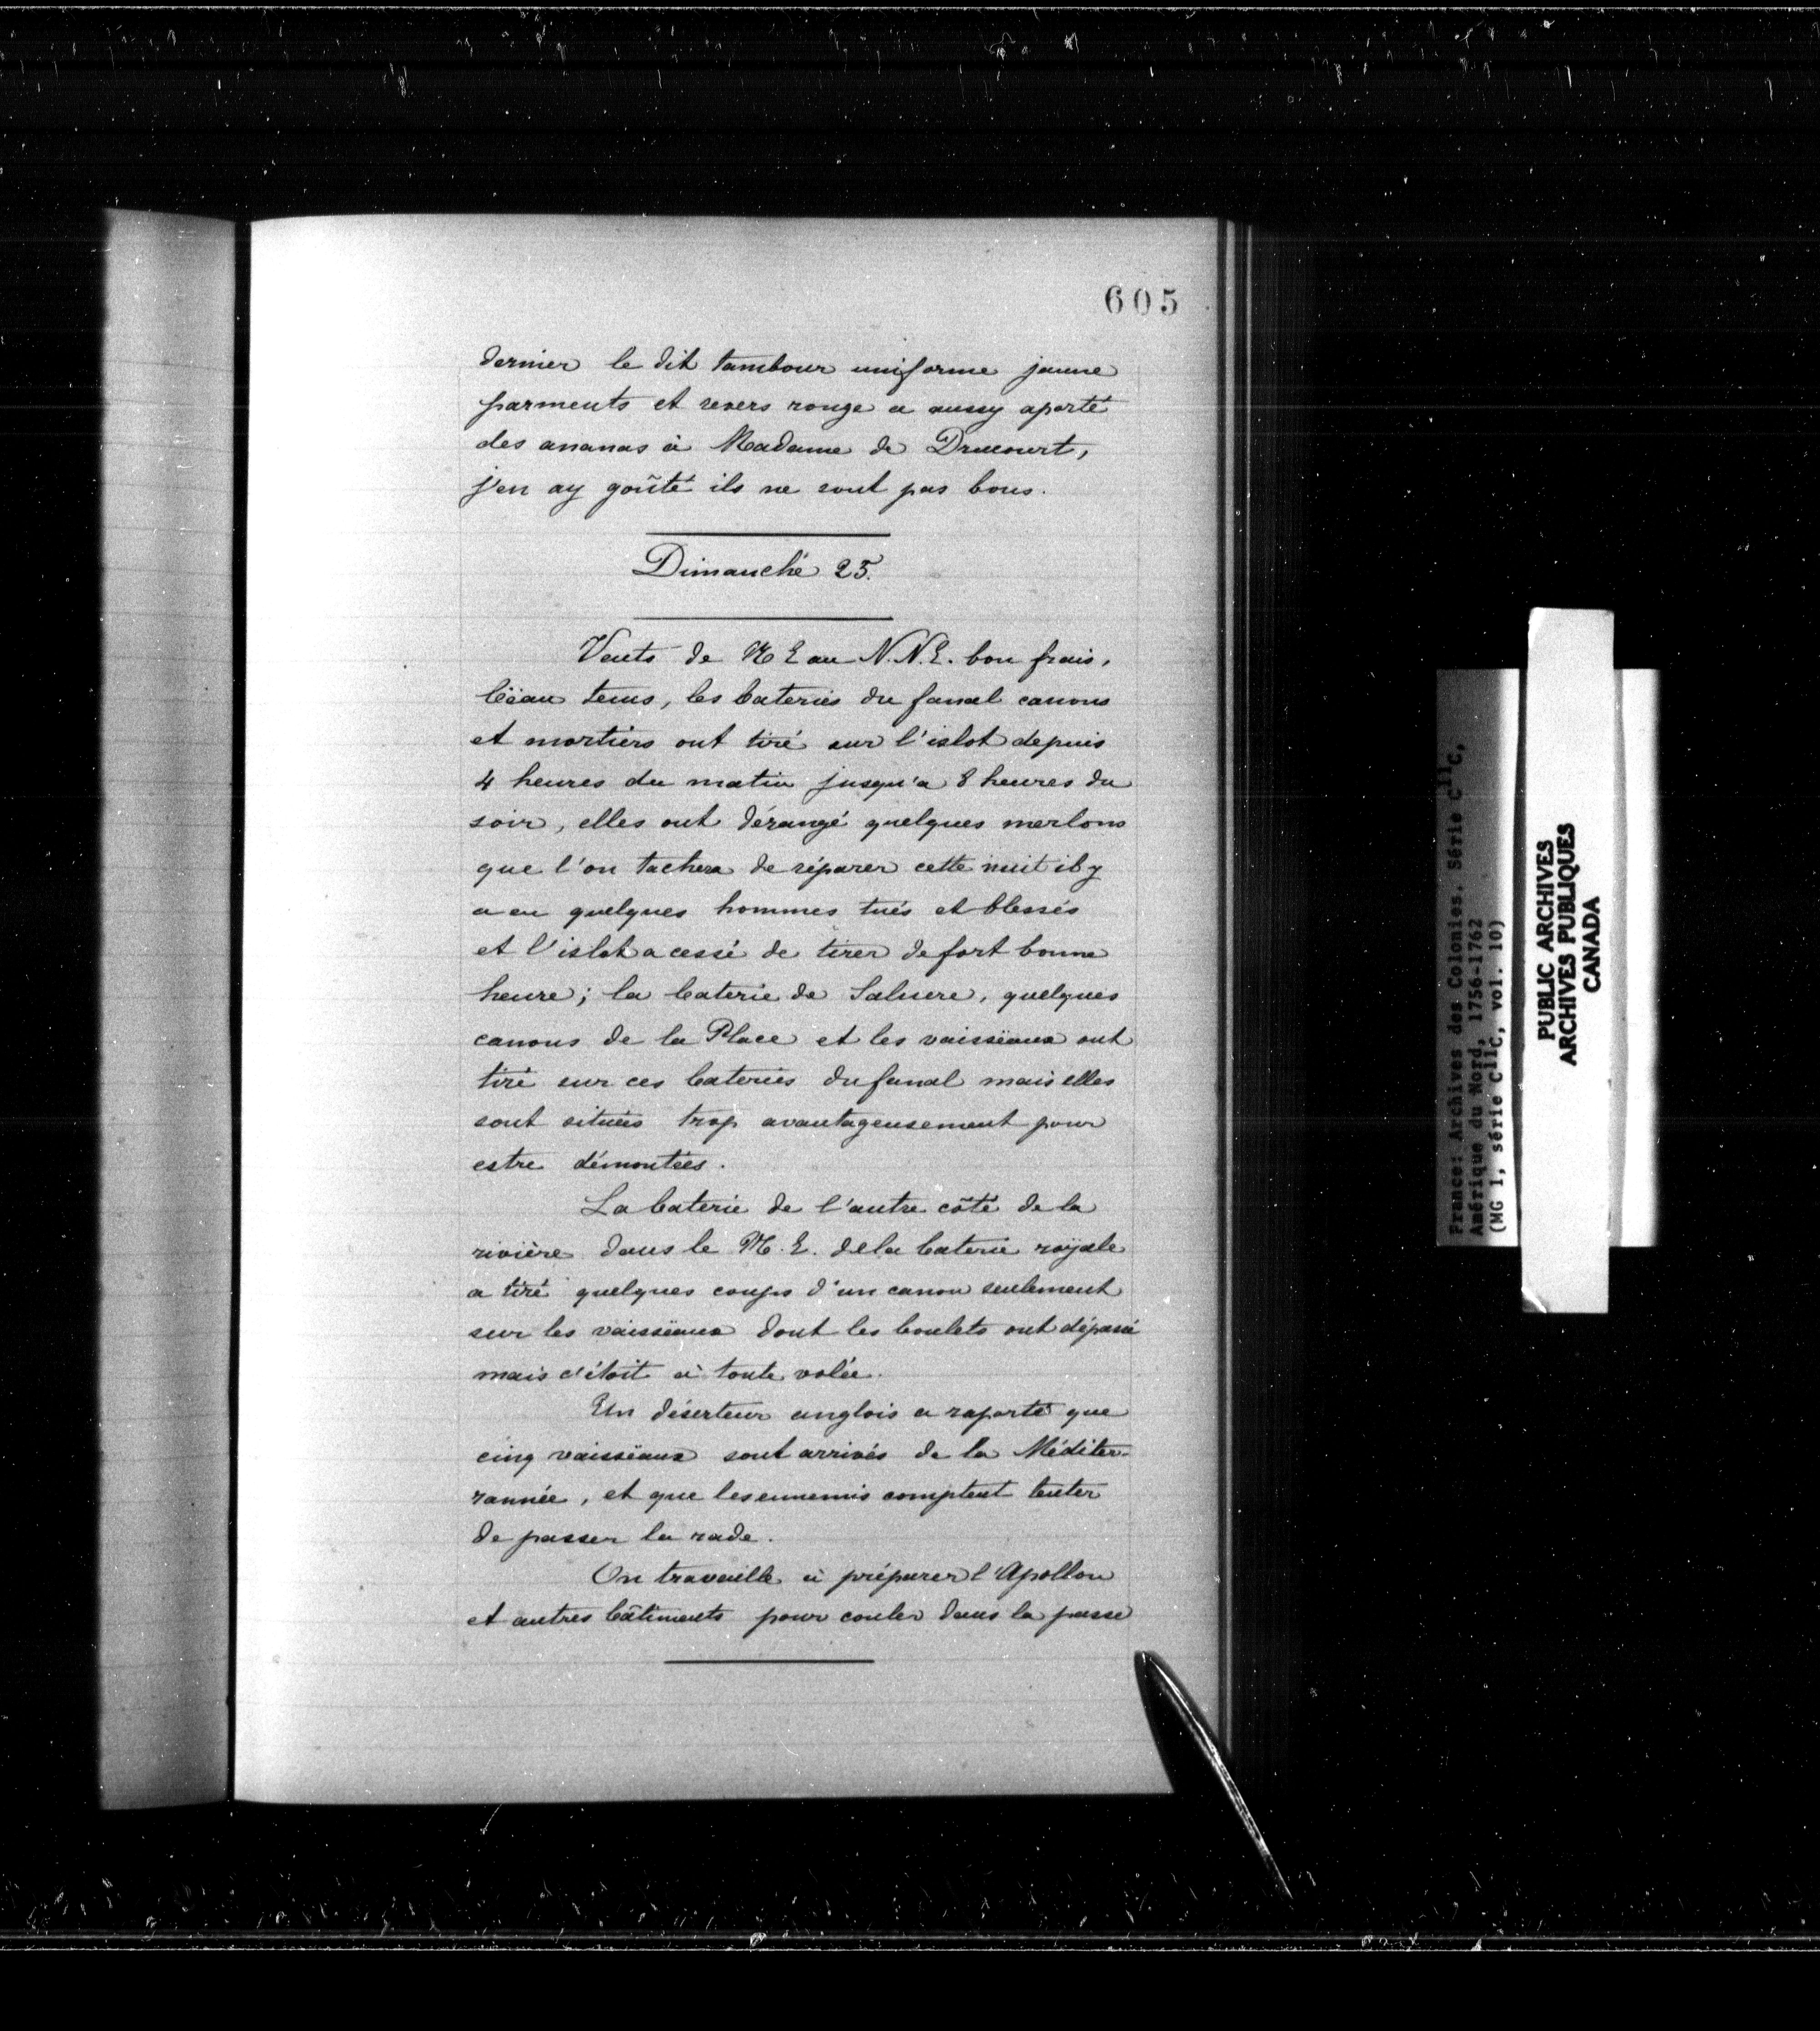 605
dernier le dit tambour uniforme jaune
parments et revers rouge a aussy aporté
des ananas à Madame de Drucourt,
j'en ay goûté ils ne sont pas bons.
Dimanche 25.
Vents de N E au N.N.E. bon frais,
bëau tems, les bateries du fanal canons
et mortiers ont tiré sur l'islot depuis
4 heures du matin jusqu'a 8 heures du
soir, elles ont dérangé quelques merlons
que l'on tachera de réparer cette nuit il y
a eu quelques hommes tués et blessés
et l'islot a cessé de tirer de fort bonne
heure; la baterie de Saluere, quelques
canons de la Place et les vaissëaux ont
tiré sur ces bateries du fanal mais elles
sont situées trop avantageusement pour
estre démontées.
La baterie de l'autre côté de la
rivière dans le N. E. de la baterie roÿale
a tiré quelques coups d'un canon seulement
sur les vaissëaux dont les boulets ont dépassé
mais c'étoit à toute volée.
Un déserteur anglois a raporté que
cinq vaissëaux sont arrivés de la Méditer-
rannée, et que les ennemis comptent tenter
de passer la rade.
On travaille à préparer l'Apollon
et autres bâtiments pour couler dans la passe
France: Archives des Colonies. Série C11C,
Amérique du Nord, 1756-1762
(MG 1, série C11C, vol. 10)
PUBLIC ARCHIVES
ARCHIVES PUBLIQUES
CANADA